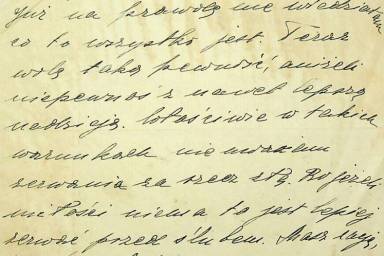 Już na prawdę nie wiedziałam
co to wszystko jest. Teraz
wolę taką pewność, aniżeli
niepewność z nawet lepszą
nadzieją. Właściwie w takich
warunkach nie uważam
zerwania za rzecz złą. Bo jeżeli
miłości niema to jest lepiej
zerwać przed ślubem. Masz rację,